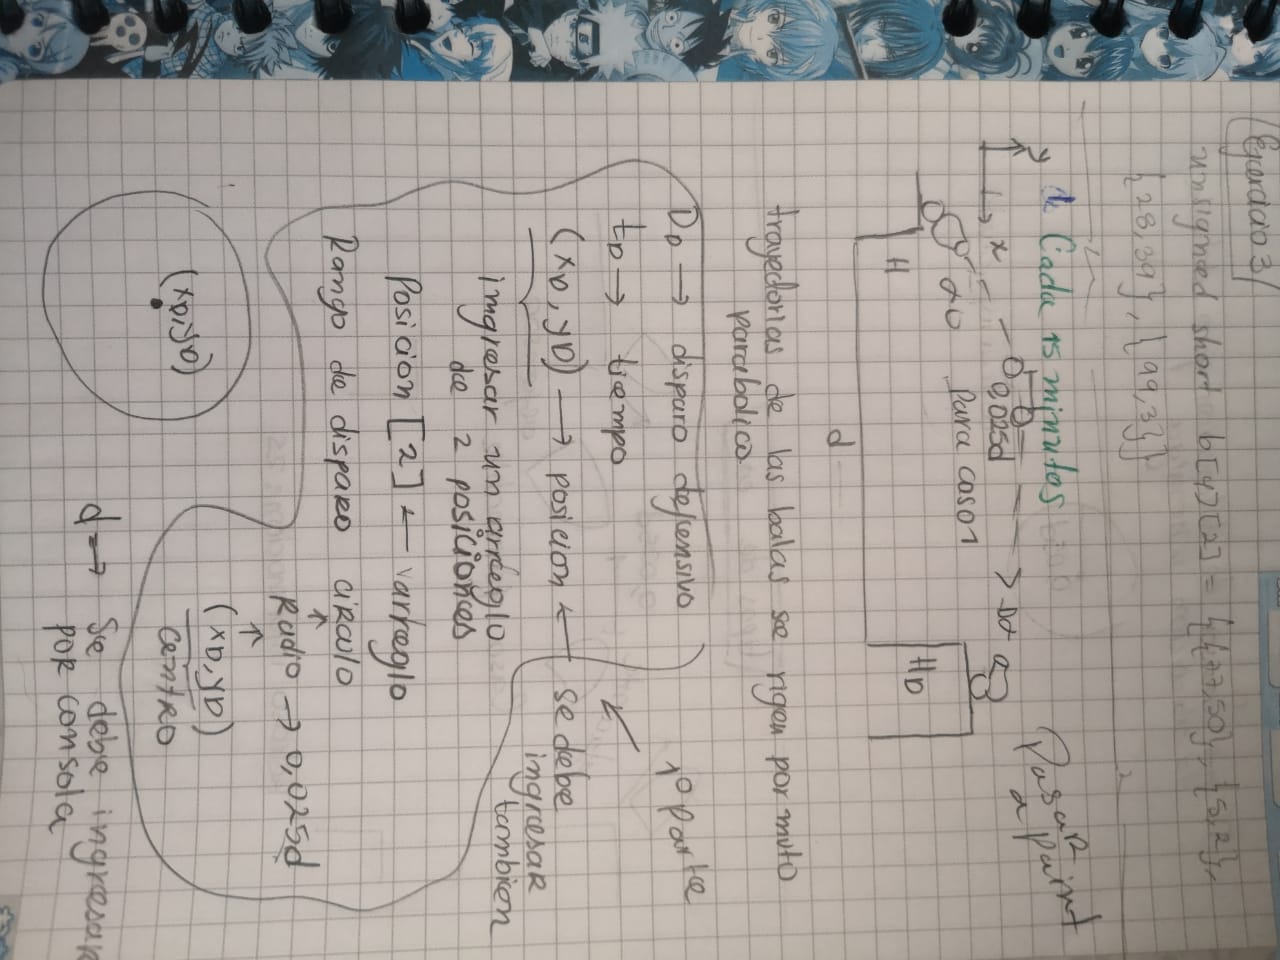 Ejercicio 3
unsigned short b[4][2] = {{77,50}, {5,2},
{28,39}, {99,3}}
Cada 15 minutos
Pasar
a paint
y
x
0,025d
Do
αo
Para caso 1
H
HD
d
trayectorias de las balas se rigen por muto
parabolico
1º parte
DD → disparo defensivo
tD → tiempo
(xD, yD) → posicion ← se debe
ingresar
tambien
imgresar un arreglo
de 2 posiciones
Posicion [2] ← arreglo
Rango de disparo circulo
↑
Radio → 0,025d
↑
(xD, yD)
centro
(xD, yD)
d → Se debe ingresar
por consola